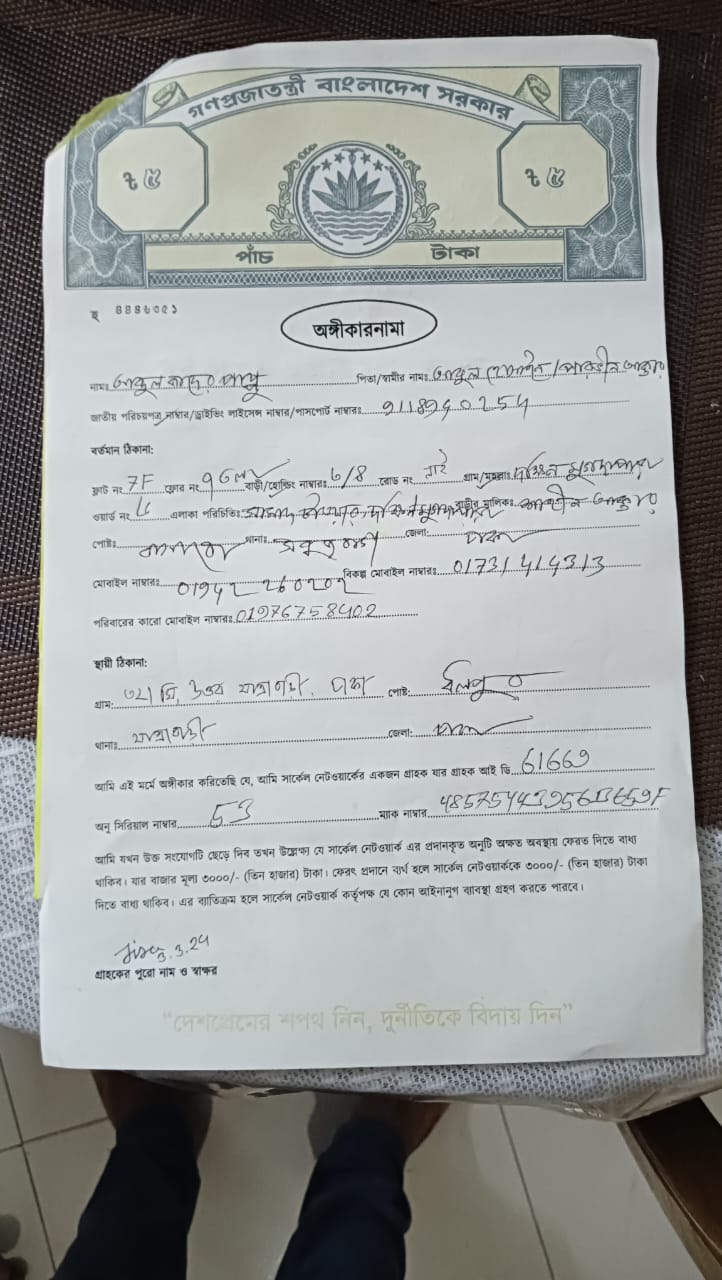 গণপ্রজাতন্ত্রী বাংলাদেশ সরকার
৳ ৫ ৳ ৫
পাঁচ টাকা
অঙ্গীকারনামা
নামঃ আব্দুল কাদের পিতা/স্বামীর নামঃ আব্দুল
জাতীয় পরিচয়পত্র নাম্বার/ড্রাইভিং লাইসেন্স নাম্বার/পাসপোর্ট নাম্বারঃ 9118940254
বর্তমান ঠিকানা:
ফ্লাট নং 7F ফ্লোর নং বাড়ী/হোল্ডিং নাম্বারঃ ৬/৪ রোড নং নাই গ্রাম/মহল্লাঃ দক্ষিন মুগদাপাড়া
ওয়ার্ড নং এলাকা পরিচিতিঃ বাড়ীর মালিকঃ
পোষ্টঃ থানাঃ জেলা: ঢাকা
মোবাইল নাম্বারঃ 01942260202 বিকল্প মোবাইল নাম্বারঃ 01731414313
পরিবারের কারো মোবাইল নাম্বারঃ 01976758402
স্থায়ী ঠিকানা:
গ্রাম: উত্তর যাত্রাবাড়ী, ঢাকা পোষ্ট:
থানাঃ যাত্রাবাড়ী জেলা: ঢাকা
আমি এই মর্মে অঙ্গীকার করিতেছি যে, আমি সার্কেল নেটওয়ার্কের একজন গ্রাহক যার গ্রাহক আই ডি 61669
অনু সিরিয়াল নাম্বার 53 ম্যাক নাম্বার
আমি যখন উক্ত সংযোগটি ছেড়ে দিব তখন উল্লেখ্য যে সার্কেল নেটওয়ার্ক এর প্রদানকৃত অনুটি অক্ষত অবস্থায় ফেরত দিতে বাধ্য
থাকিব। যার বাজার মূল্য ৩০০০/- (তিন হাজার) টাকা। ফেরৎ প্রদানে ব্যর্থ হলে সার্কেল নেটওয়ার্ককে ৩০০০/- (তিন হাজার) টাকা
দিতে বাধ্য থাকিব। এর ব্যতিক্রম হলে সার্কেল নেটওয়ার্ক কর্তৃপক্ষ যে কোন আইনানুগ ব্যাবস্থা গ্রহণ করতে পারবে।
3.3.24
গ্রাহকের পুরো নাম ও স্বাক্ষর
“দেশপ্রেমের শপথ নিন, দুর্নীতিকে বিদায় দিন”